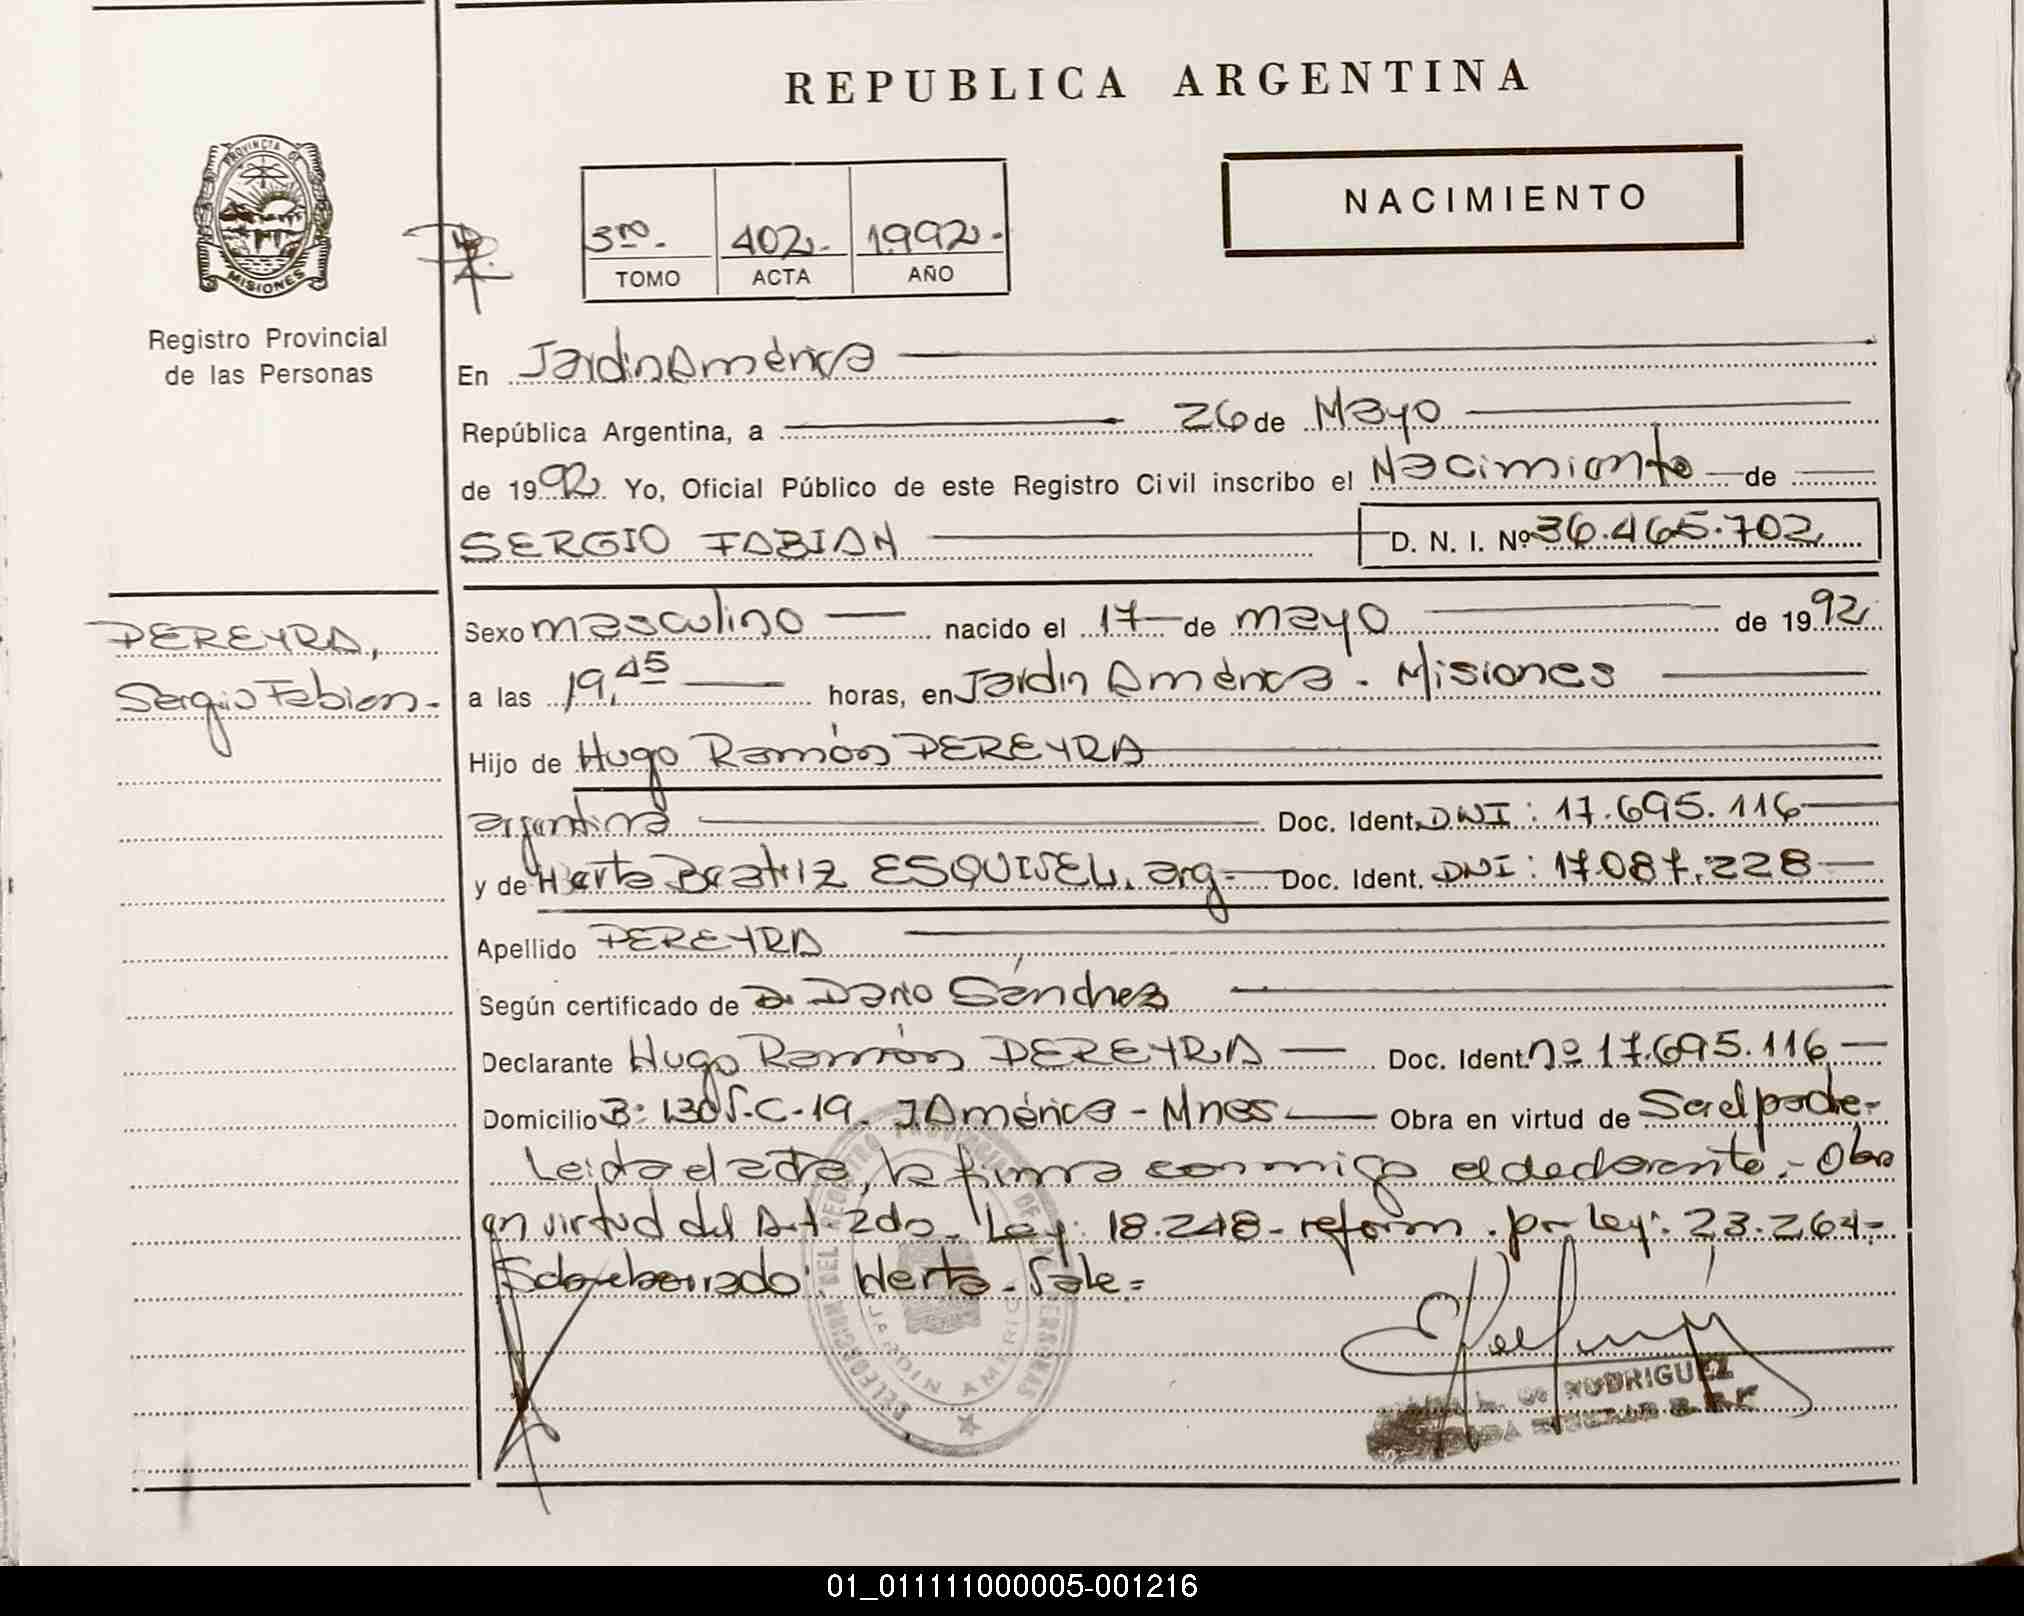 REPUBLICA ARGENTINA
PROVINCIA DE
MISIONES
Registro Provincial
de las Personas
NACIMIENTO
3ro. 402.- 1992.-
TOMO ACTA AÑO
En Jardin América
República Argentina, a 26 de Mayo
de 1992. Yo, Oficial Público de este Registro Civil inscribo el Nacimiento de
SERGIO FABIAN D. N. I. Nº 36.465.702
PEREYRA,
Sergio Fabian.-
Sexo masculino nacido el 17 de mayo de 1992
a las 19,45 horas, en Jardin América - Misiones
Hijo de Hugo Ramón PEREYRA
argentina Doc. Ident. DNI: 17.695.116
y de Herta Beatriz ESQUIVEL, arg.- Doc. Ident. DNI: 17.087.228
Apellido PEREYRA
Según certificado de Dario Sánchez
Declarante Hugo Ramón PEREYRA Doc. Ident. nº 17.695.116
Domicilio C-19. J. América - Mnes Obra en virtud de Ser el padre.-
Leida el acta, la firma conmigo el declarante.- Obra
en virtud del Art 2do. Ley: 18.248- reform. por ley: 23.264.-
Sobreborrado: Herta. Vale=
DELEGACION DEL REGISTRO PROVINCIAL DE LAS PERSONAS
JARDIN AMERICA
RODRIGUEZ
01_011111000005-001216